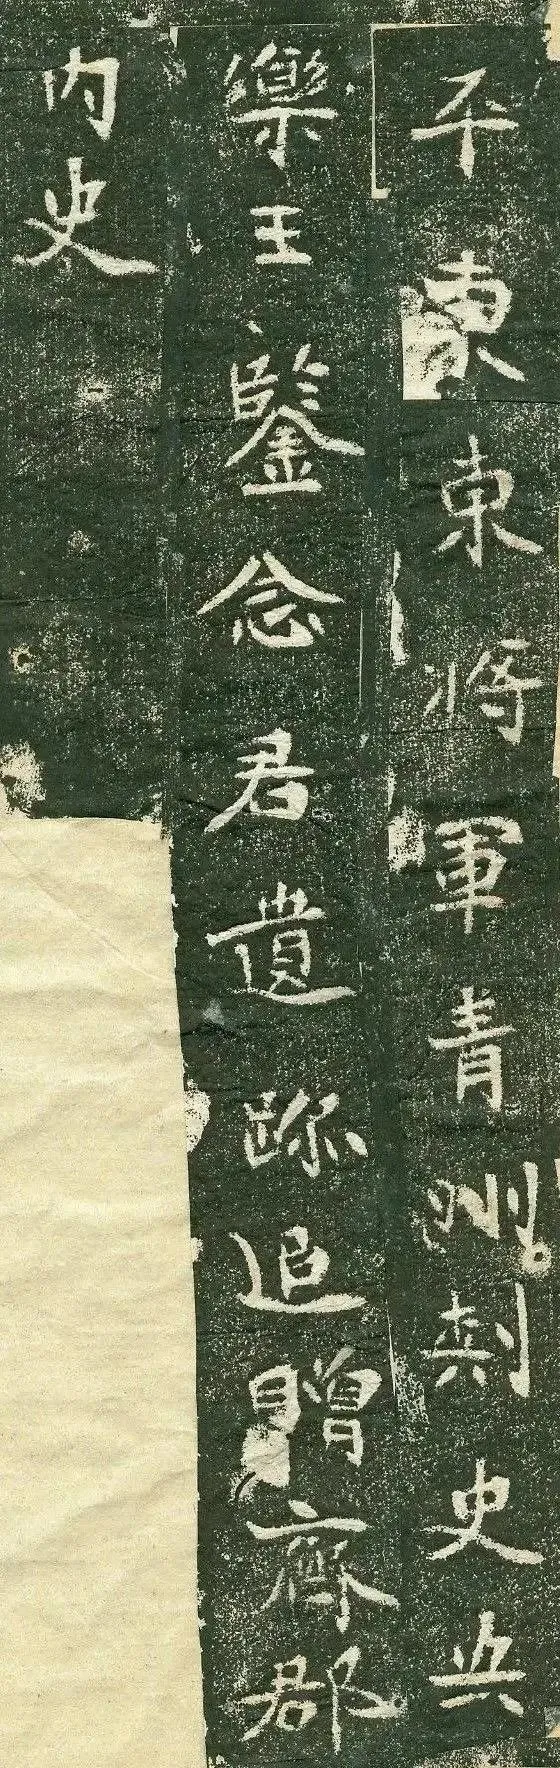 平東東將軍青州刺史安
樂王鑒念君遺跡追贈齊郡
內史